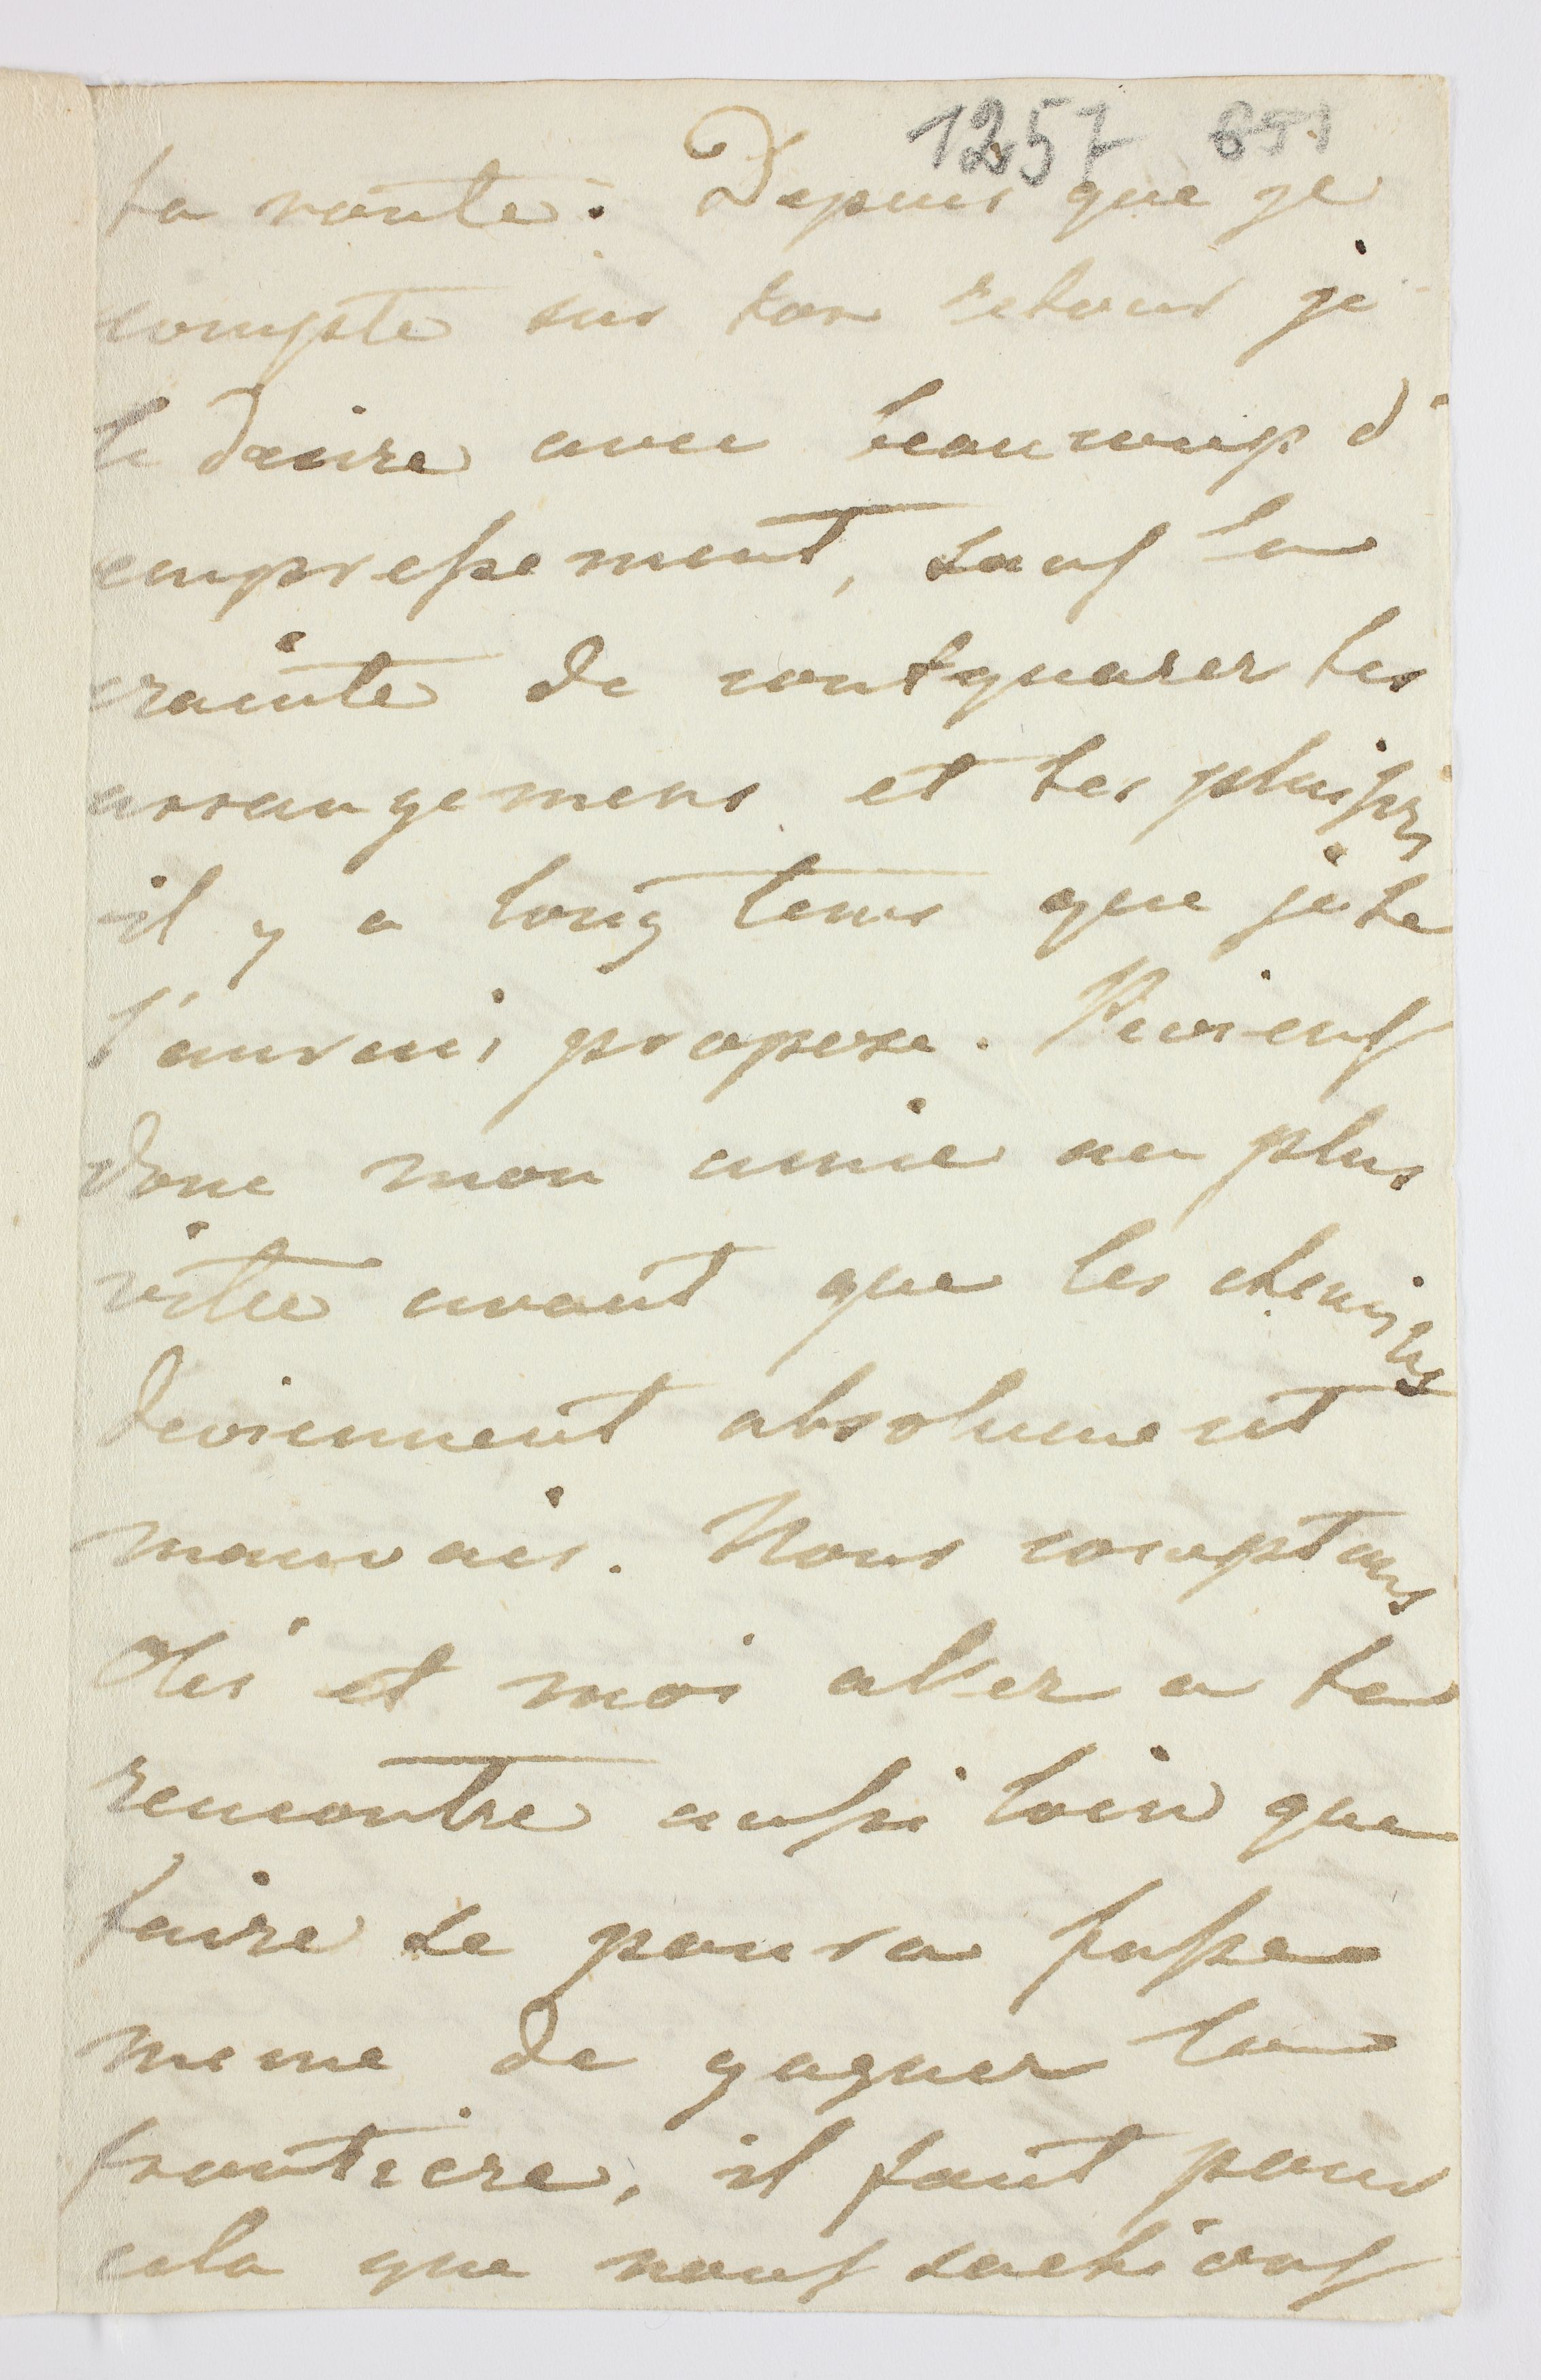 1257 651
ta route. Depuis que je
compte sur ton retour je
le desire avec beaucoup d'
empressement, sauf la
crainte de contquarer tes
arrangemens et tes plaisirs
il y a long tems que je te
l'aurais propose. Reviens
donc mon amie au plus
vitte avant que les chemins
deviennent absolument
mauvais. Nous comptons
et moi aller a ta
rencontre aussi loin que
faire se poura fusse
meme de gagner la
frontiere, il faut pour
cela que nous sachions